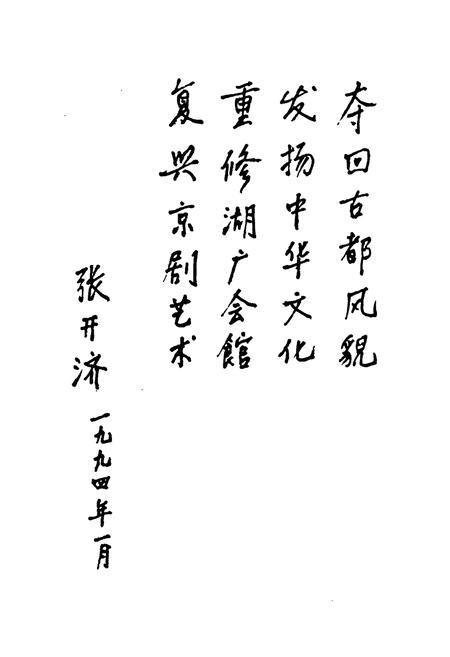 夺回古都风貌
发扬中华文化
重修湖广会館
复兴京剧艺术
张开济
一九九四年一月